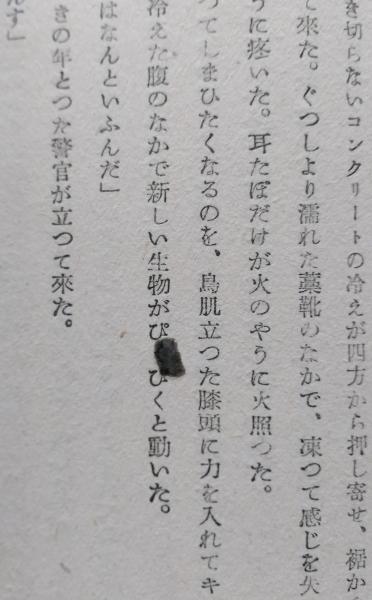 を切らないコンクリートの冷えが四方から押し寄せ、裾か
て來た。ぐつしより濡れた藁靴のなかで、凍つて感じを失
うに疼いた。耳たぼだけが火のやうに火照つた。
つてしまひたくなるのを、鳥肌立つた膝頭に力を入れてキ
冷えた腹のなかで新しい生物がぴくひくと動いた。
はなんといふんだ」
きの年とつた警官が立つて來た。
んす」